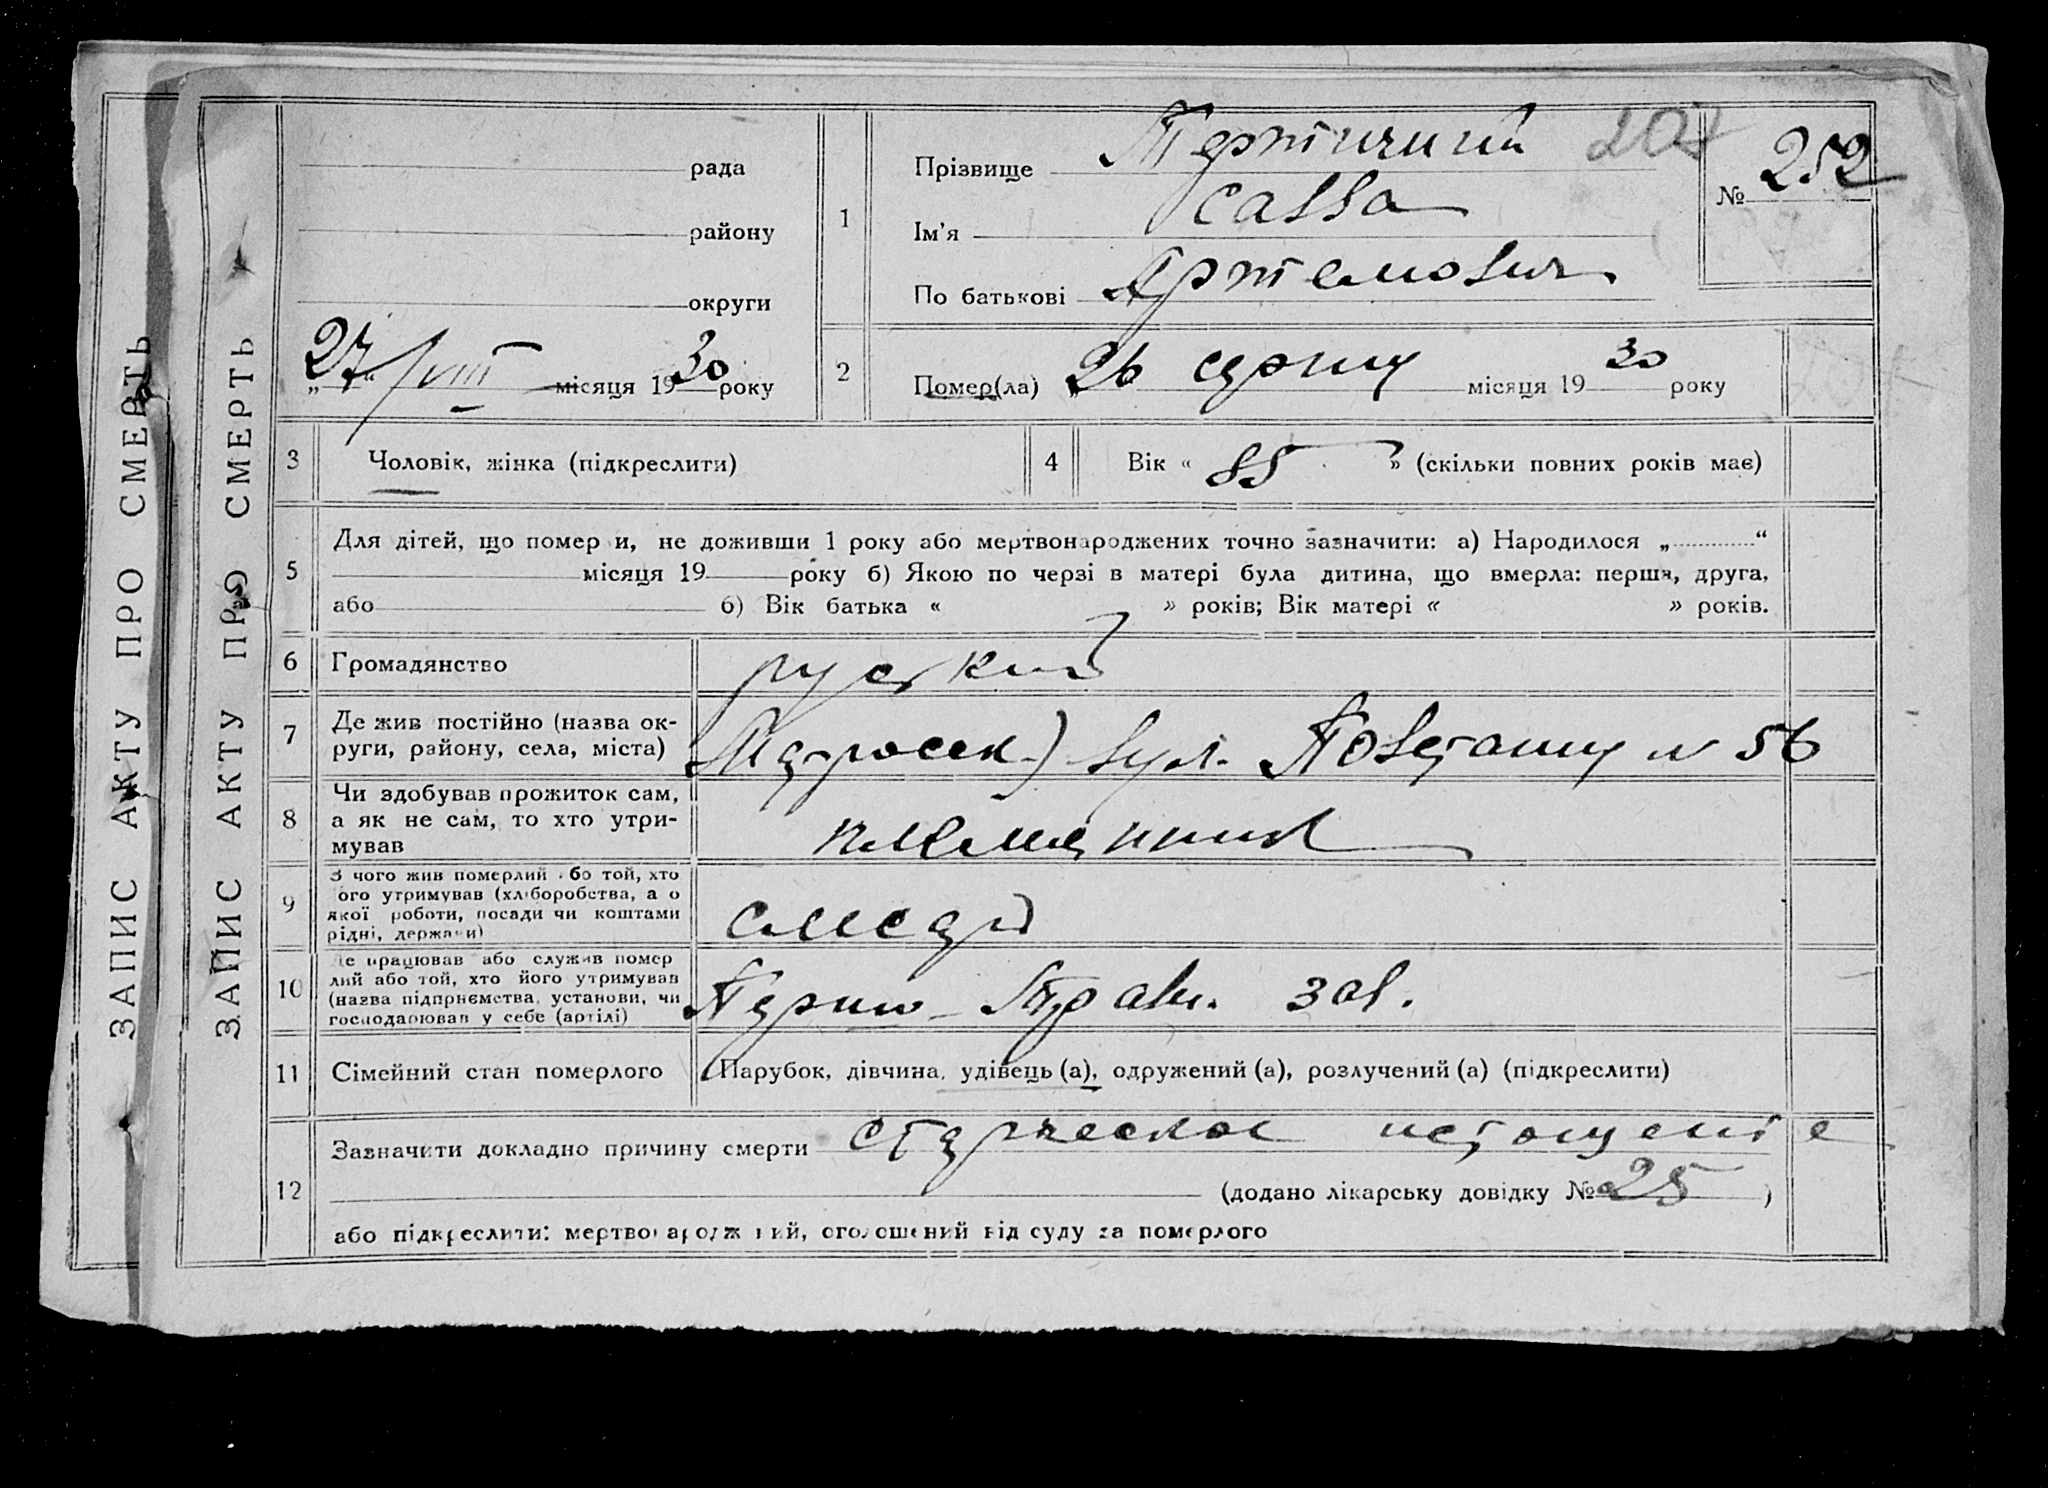 ЗАПИС АКТУ ПРО СМЕРТЬ
ЗАПИС АКТУ ПРО СМЕРТЬ
рада
району
округи
„27“ / VIII місяця 1930 року
1
Прізвище
207
№ 252
Ім'я Савва
По батькові Артемович
2
Помер(ла) 26 серпня місяця 1930 року
3 Чоловік, жінка (підкреслити)
4 Вік « 85 » (скільки повних років має)
5
Для дітей, що помер и, не доживши 1 року або мертвонароджених точно зазначити: а) Народилося „ “
місяця 19 року б) Якою по черзі в матері була дитина, що вмерла: перша, друга,
або б) Вік батька « » років; Вік матері « » років.
6 Громадянство руский
7
Де жив постійно (назва ок-
руги, району, села, міста)
вул. Повстання № 56
8
Чи здобував прожиток сам,
а як не сам, то хто утри-
мував
племянник
9
З чого жив померлий або той, хто
його утримував (хліборобства, а о
якої роботи, посади чи коштами
рідні, держави)
слесар
10
Де працював або служив помер
лий або той, хто його утримував
(назва підприємства, установи, чи
господарював у себе (артілі)
зав.
11 Сімейний стан померлого
Парубок, дівчина, удівець (а), одружений (а), розлучений (а) (підкреслити)
12
Зазначити докладно причину смерти старческое истощение
(додано лікарську довідку № 25 )
або підкреслити: мертвонароджений, оголошений від суду за померлого